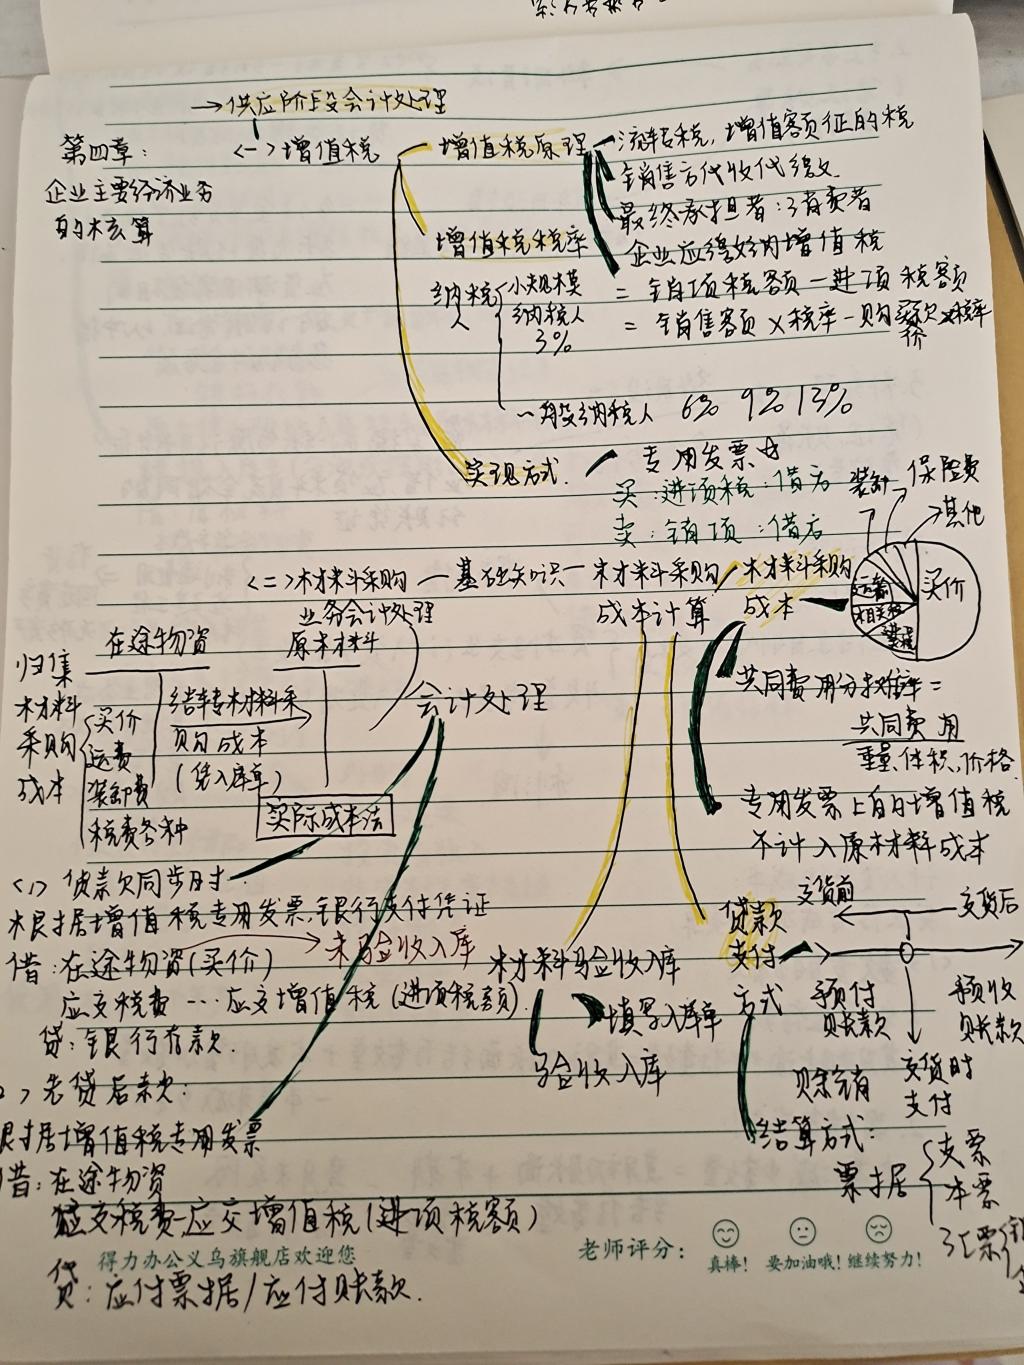 →供应阶段会计处理
第四章:
企业主要经济业务
的核算
<一>增值税
增值税原理
流转税,增值额征的税
销售方代收代缴
最终承担者:消费者
企业应缴纳增值税
=销项税额-进项税额
=销售额×税率-购买价×税率
增值税税率
纳税人
小规模
纳税人
3%
一般纳税人 6% 9% 13%
实现方式
专用发票
买:进项税:借
卖:销项:借
<二>材料采购
业务会计处理
基础知识
材料采购
成本计算
材料采购
成本
装卸
保险费
其他
买价
运输
相关税
共同费用分摊率=
共同费用
重量、体积、价格
专用发票上的增值税
不计入原材料成本
归集
材料
采购
成本
在途物资
原材料
买价
运费
装卸费
税费各种
结转材料采
购成本
(凭入库单)
实际成本法
会计处理
<1>货款同步时
根据增值税专用发票、银行支付凭证
借:在途物资(买价)
未验收入库
应交税费…应交增值税(进项税额)
贷:银行存款.
>先货后款:
据增值税专用发票
借:在途物资
应交税费-应交增值税(进项税额)
贷:应付票据/应付账款.
材料验收入库
填写入库单
验收入库
贷款
支付
方式
交货前
交货后
预付
账款
预收
账款
赊销
交货时
支付
结算方式:
票据
支票
本票
汇票
得力办公义乌旗舰店欢迎您
老师评分:
真棒! 要加油哦! 继续努力!